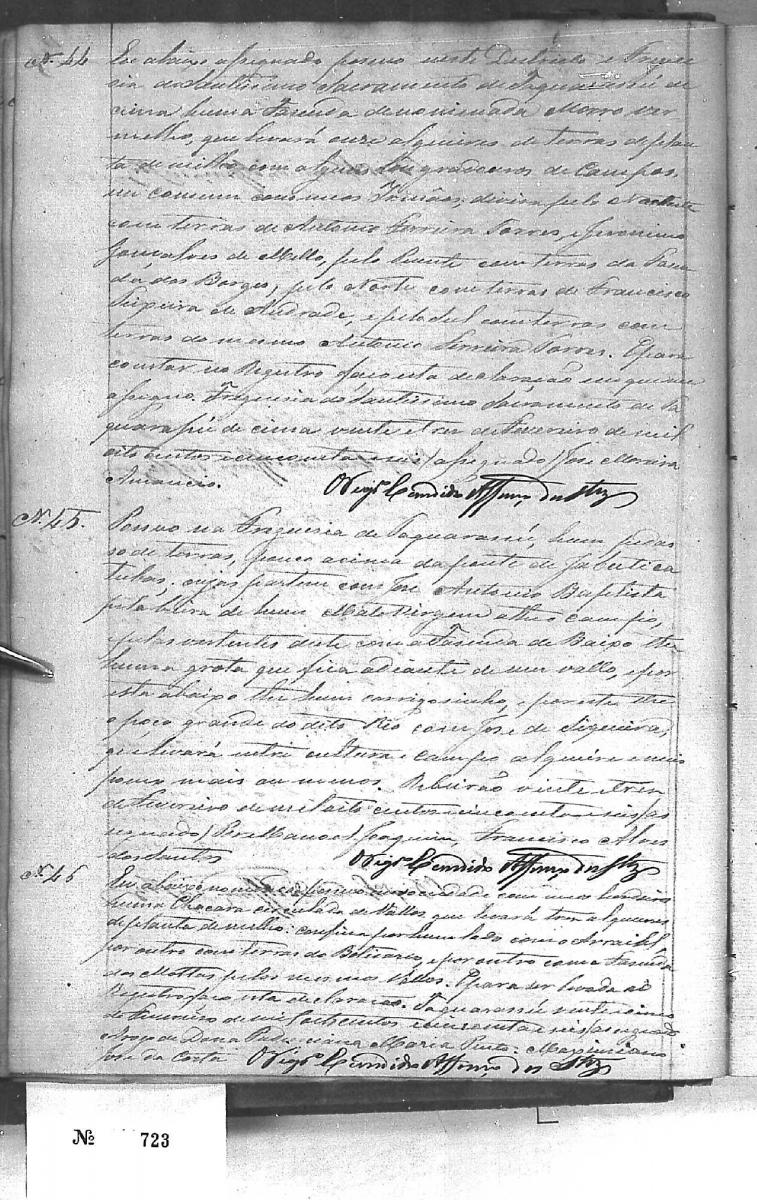 N. 44 Eu abaixo assignado possuo neste Destricto e Fregue
cia do Santissimo Sacramento de Taquarassú de
cima huma Fazenda denominada Morro ver
melho, que levará onze alqueires de terras de plan
ta de milho com alguns logradouros de Campos,
em commum com meos Irmãos, divisa pelo Nascente
com terras de Antonio Ferreira Torres, e Jeronimo
Gonçalves de Mello, pelo Puente com terras da Fazen
da dos Borges, pelo Norte com terras de Francisco
Teixeira de Andrade, e pelo Sul com terras com
terras do mesmo Antonio Ferreira Torres. E para
constar no Registro faço esta declaração em que me
assigno. Freguesia do Santissimo Sacramento de Ta
quarassú de cima vinte e tres de Fevereiro de mil
oito centos e cincoenta e seis / assignado / José Moreira
Amancio. O Vigr.º Candido Affonço dos
N. 45. Possuo na Freguesia de Taquarassú, hum pedas
so de terras, pouco acima da ponte de Jaboticа
tubas, cujas partem com José Antonio Baptista
pela beira de hum Mato Virgem athe o campo,
e pelas vertentes deste com a Fazenda de Baixo the
huma grota que fica adiante de um vallo, e por
esta abaixo the hum corregosinho, e por este the
o poço grande do dito Rio com José de Siqueira,
que levará entre cultura e campo alqueire e meio
pouco mais ou menos. Ribeirão vinte e tres
de Fevereiro de mil oito centos e cincoenta e seis / as
signado / Pere Manoel Joaquim, Francisco Alves
dos Santos O Vigr.º Candido Affonço dos
N. 46 Eu abaixo possuo em sociedade com meos herdeiros
huma Chacara circulada de Vallos, que levará tres alqueires
de planta de milho: confina por hum lado com o Arraial,
por outro com terras do Belisario, e por outro com a Fazenda
dos Mottas pelos mesmos Vallos. E para ser levada ao
Registro faço esta declaração. Taquarassú vinte e cinco
de Fevereiro de mil oitocentos e cincoenta e seis / assignado
A rogo de Dona Maria Pinto: Maximiano
José da Costa O Vigr.º Candido Affonço dos
Nº 723